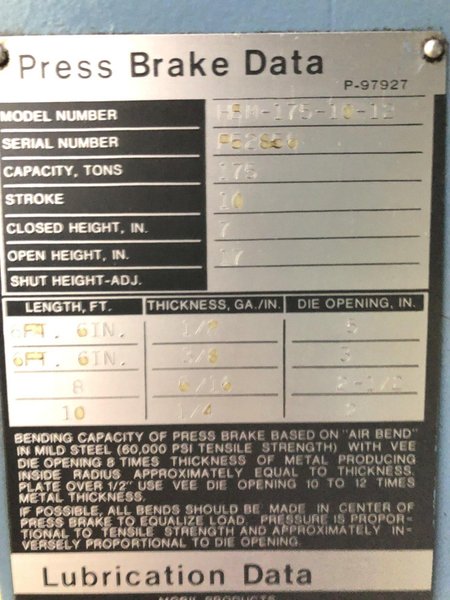 Press Brake Data
P-97927
MODEL NUMBER -175-10-12
SERIAL NUMBER
CAPACITY, TONS 175
STROKE 10
CLOSED HEIGHT, IN. 7
OPEN HEIGHT, IN. 17
SHUT HEIGHT-ADJ.
LENGTH, FT. THICKNESS, GA./IN. DIE OPENING, IN.
FT. 6IN. 1/2 5
6FT. 6IN. 3/8 3
8 5/16 2-1/2
10 1/4 2
BENDING CAPACITY OF PRESS BRAKE BASED ON "AIR BEND"
IN MILD STEEL (60,000 PSI TENSILE STRENGTH) WITH VEE
DIE OPENING 8 TIMES THICKNESS OF METAL PRODUCING
INSIDE RADIUS APPROXIMATELY EQUAL TO THICKNESS.
PLATE OVER 1/2" USE VEE DIE OPENING 10 TO 12 TIMES
METAL THICKNESS.
IF POSSIBLE, ALL BENDS SHOULD BE MADE IN CENTER OF
PRESS BRAKE TO EQUALIZE LOAD. PRESSURE IS PROPOR-
TIONAL TO TENSILE STRENGTH AND APPROXIMATELY IN-
VERSELY PROPORTIONAL TO DIE OPENING.
Lubrication Data
MOBIL PRODUCTS